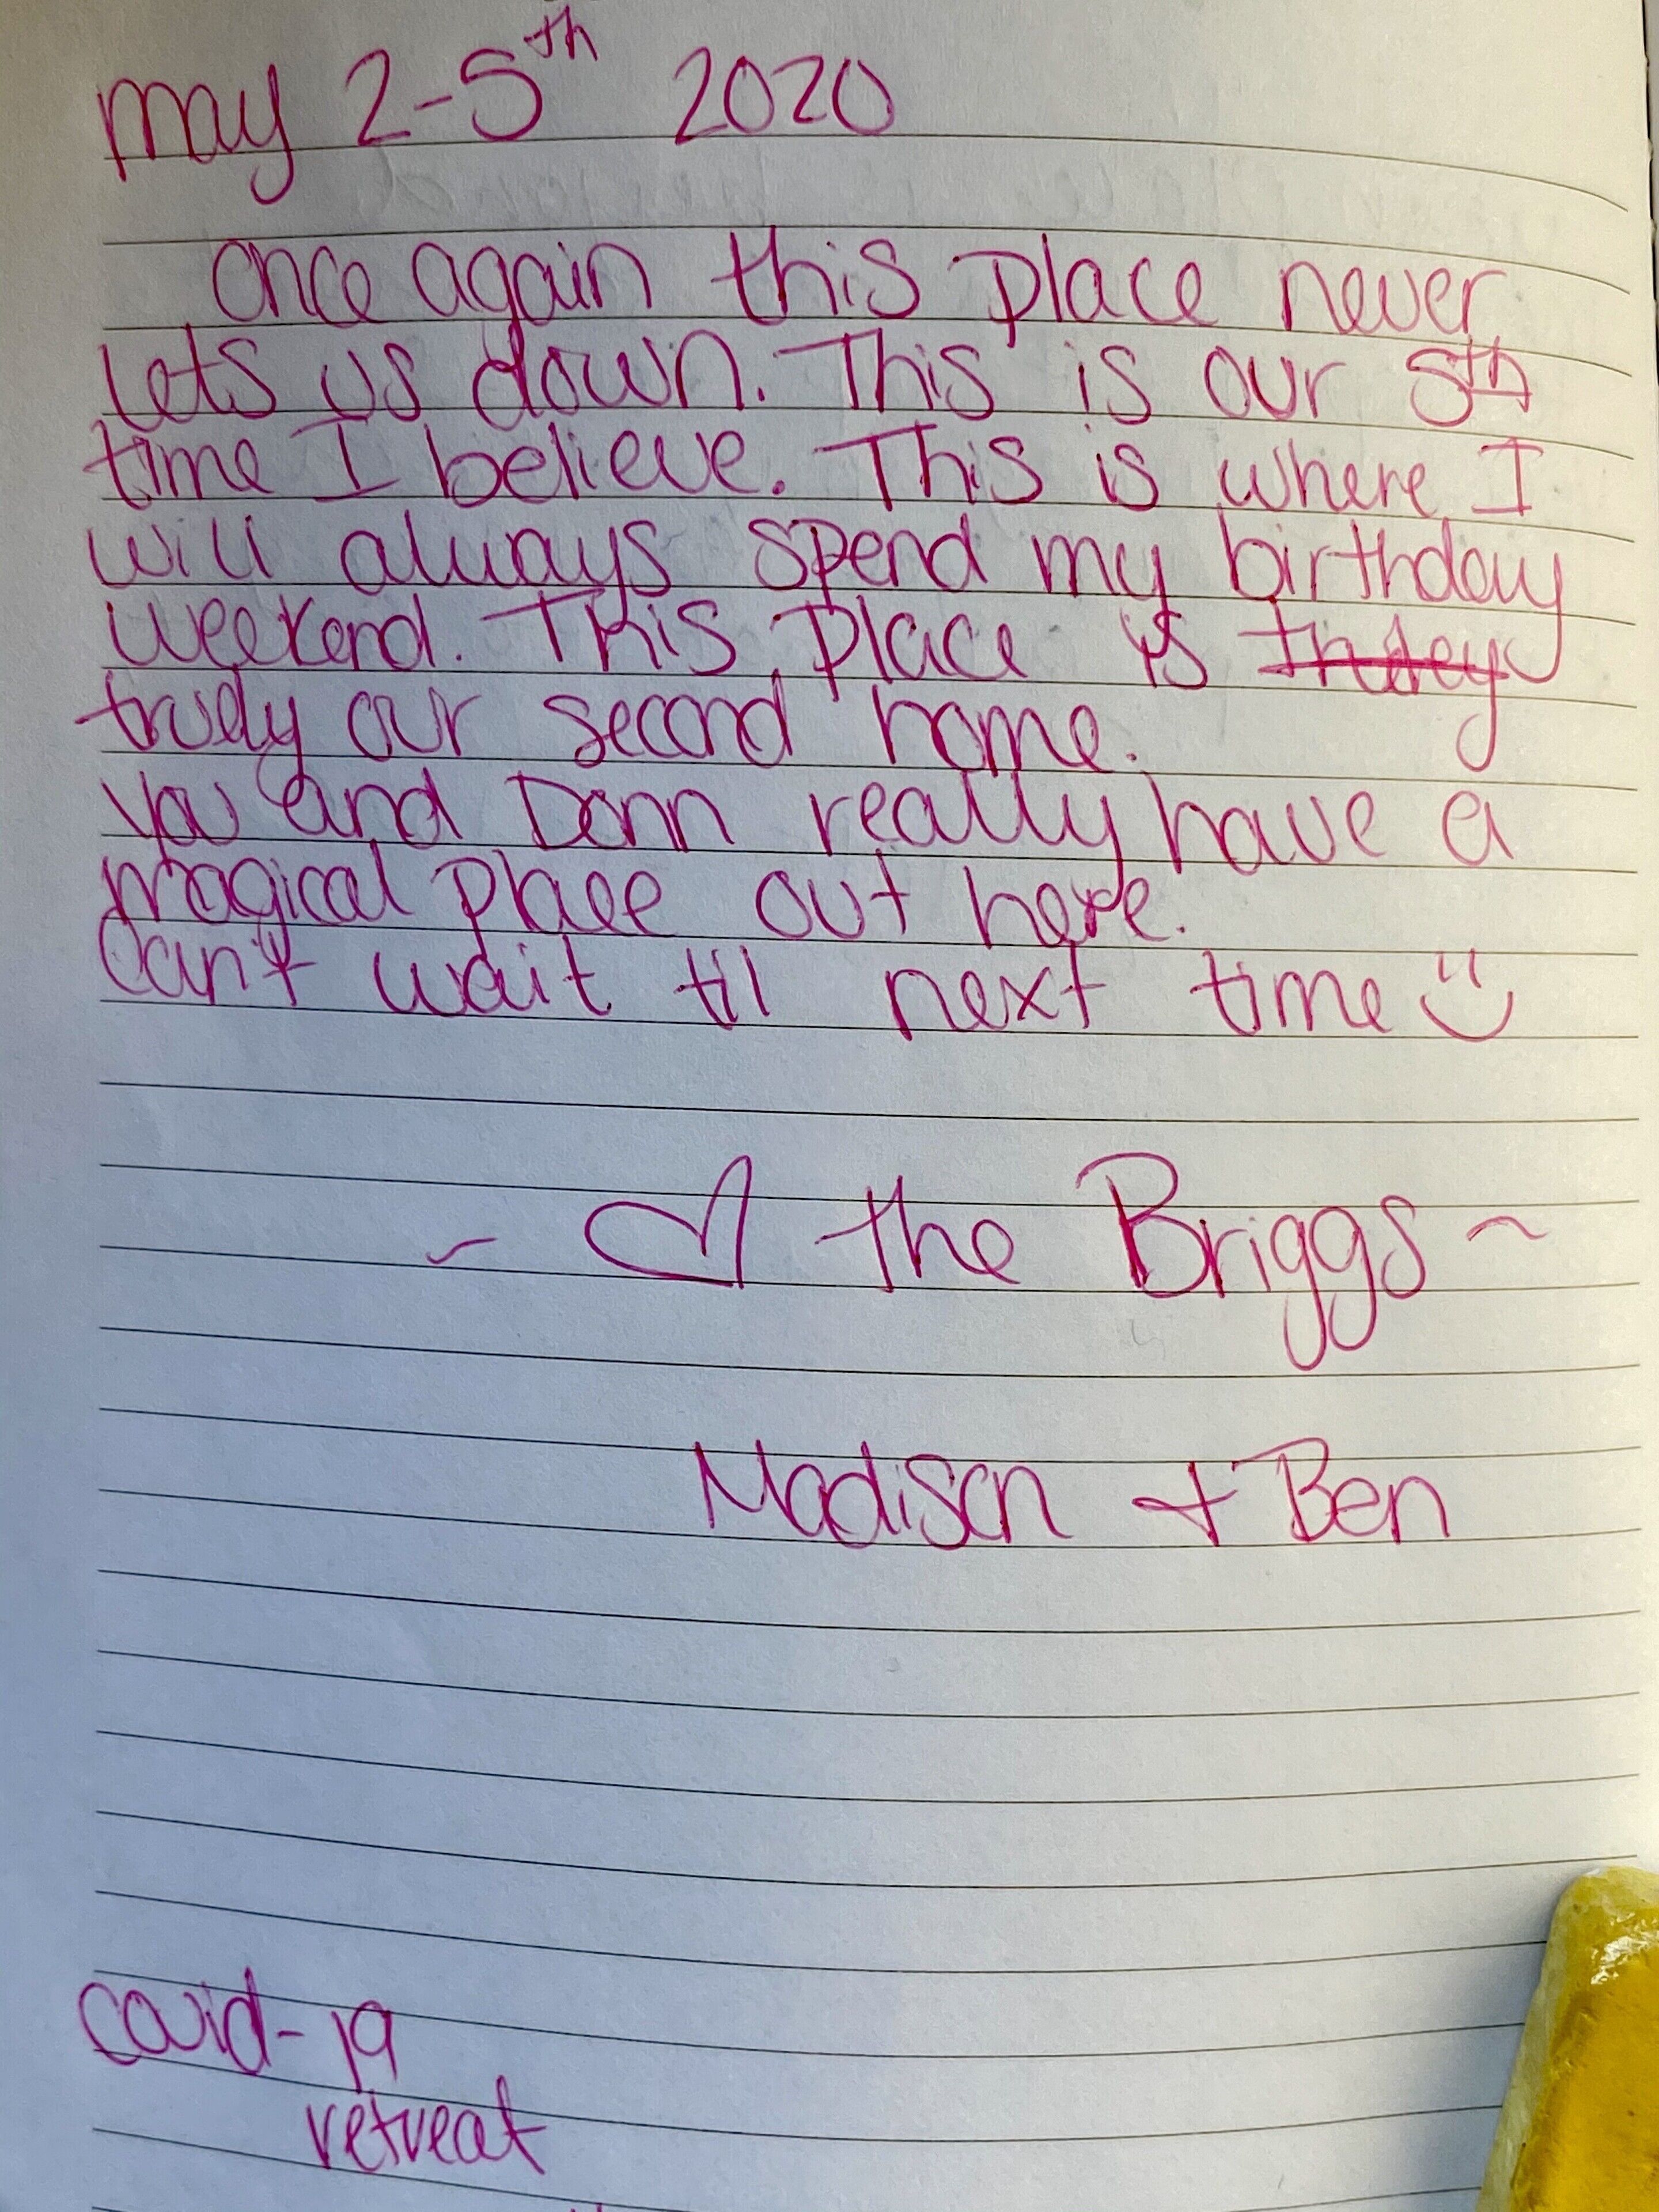 may 2-5th 2020
once again this place never
lets us down. This is our 5th
time I believe. This is where I
will always spend my birthday
weekend. This place is
truely our second home.
you and Donn really have a
magical place out here.
Can't wait til next time :)
- ♡ the Briggs ~
Madison + Ben
covid-19
retreat